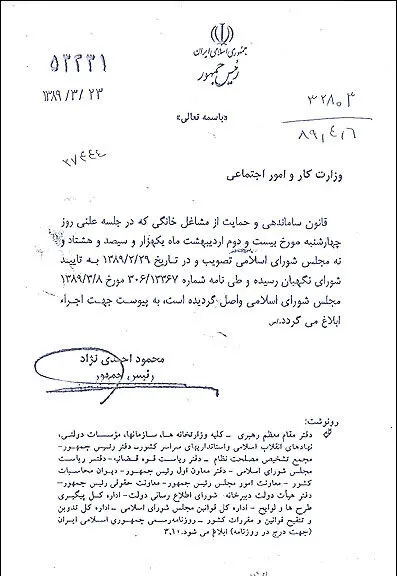 جمهوری اسلامی ایران
رئیس جمهور
۵۳۴۳۱
۱۳۸۹/۳/۲۳
«باسمه تعالی»
۳۲۸۰۳
۸۹٫۴٫۶
۲۷۴۴۴
وزارت کار و امور اجتماعی
قانون ساماندهی و حمایت از مشاغل خانگی که در جلسه علنی روز
چهارشنبه مورخ بیست و دوم اردیبهشت ماه یکهزار و سیصد و هشتاد و
نه مجلس شورای اسلامی تصویب و در تاریخ ۱۳۸۹/۲/۲۹ به تایید
شورای نگهبان رسیده و طی نامه شماره ۳۰۶/۱۳۳۶۷ مورخ ۱۳۸۹/۳/۸
مجلس شورای اسلامی واصل گردیده است، به پیوست جهت اجراء
ابلاغ می گردد.
محمود احمدی نژاد
رئیس جمهور
رونوشت:
دفتر مقام معظم رهبری - کلیه وزارتخانه ها، سازمانها، مؤسسات دولتی،
نهادهای انقلاب اسلامی واستانداریهای سراسر کشور- دفتر رئیس جمهور-
مجمع تشخیص مصلحت نظام - دفتر ریاست قوه قضائیه- دفتر ریاست
مجلس شورای اسلامی - دفتر معاون اول رئیس جمهور- دیوان محاسبات
کشور - معاونت امور مجلس رئیس جمهور- معاونت حقوقی رئیس جمهور-
دفتر هیأت دولت دبیرخانه شورای اطلاع رسانی دولت- اداره کل پیگیری
طرح ها و لوایح - اداره کل قوانین مجلس شورای اسلامی - اداره کل تدوین
و تنقیح قوانین و مقررات کشور - روزنامه رسمی جمهوری اسلامی ایران
(جهت درج در روزنامه) ابلاغ می شود.۳،۱۰